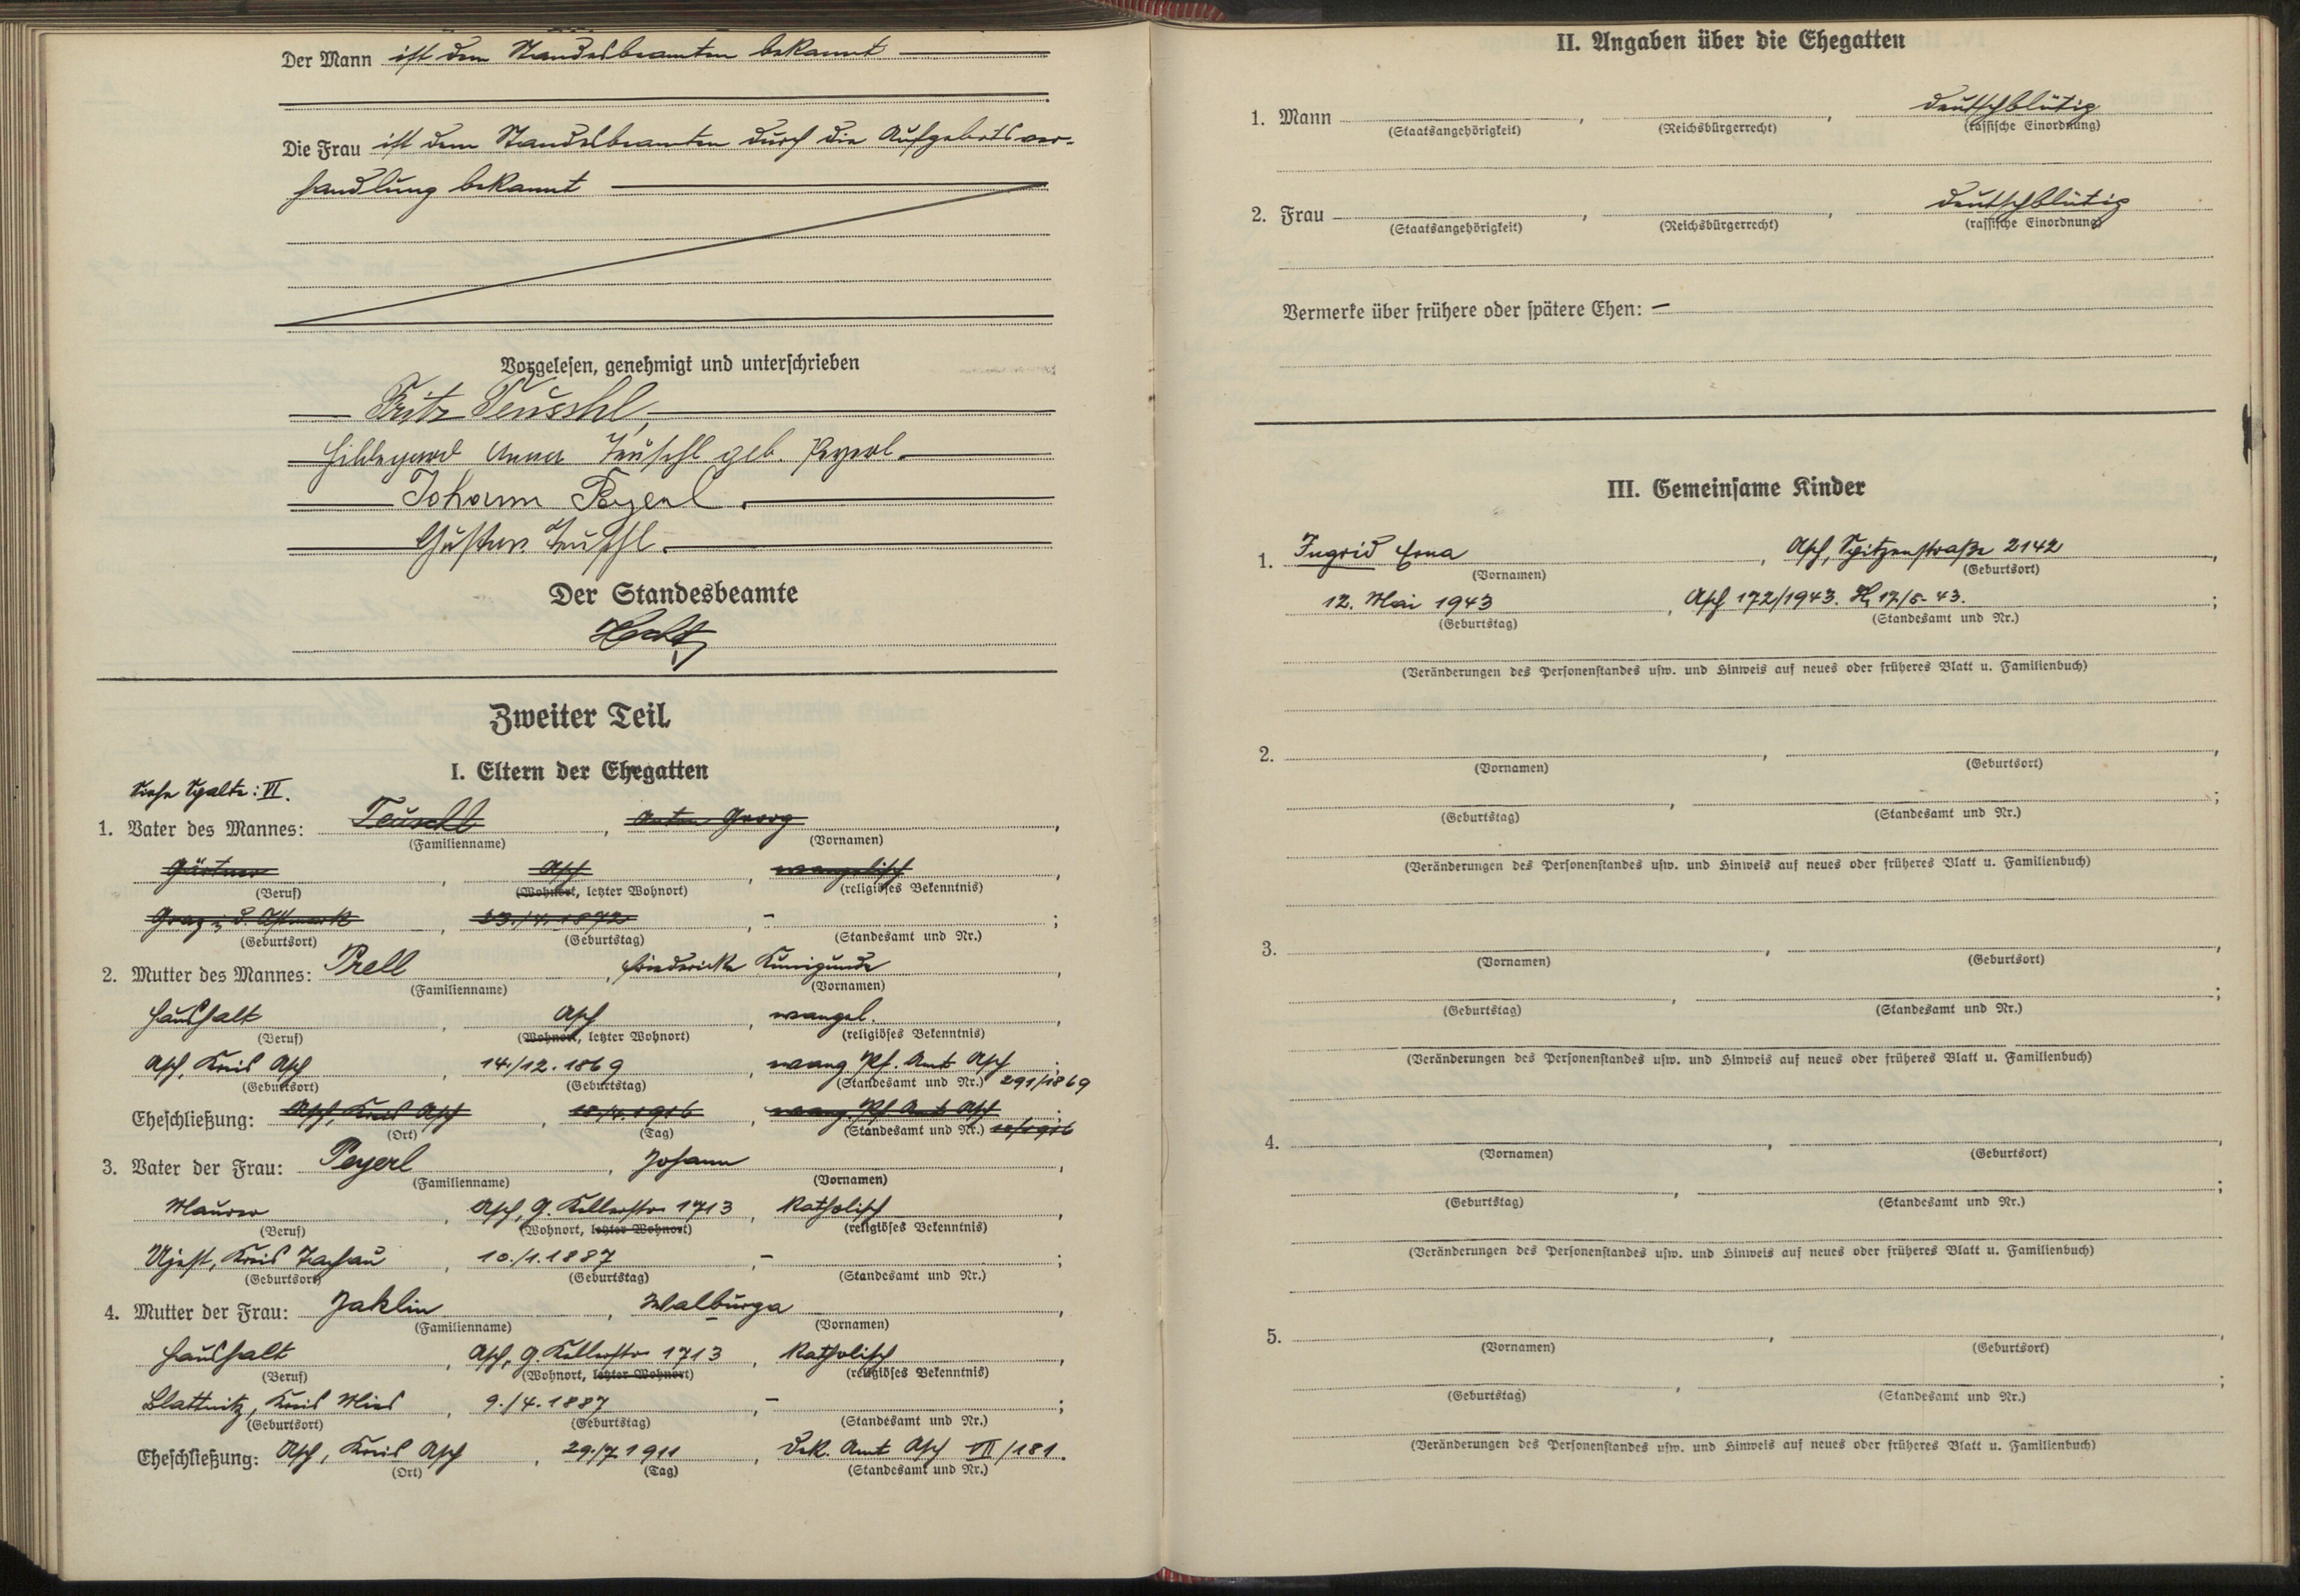 Der Mann ist dem Standesbeamten bekannt
Die Frau ist dem Standesbeamten durch die Aufgebotsver-
handlung bekannt
Vorgelesen, genehmigt und unterschrieben
Fritz Teuschl,
Hildegard Anna Teuschl geb. Peyerl.
Johann Peyerl.
Gustav Teuschl.
Der Standesbeamte
Zweiter Teil
I. Eltern der Ehegatten
Siehe Spalte: VI.
1. Vater des Mannes: Teuschl, Anton Georg,
(Familienname) (Vornamen)
Gärtner, Asch, evangelisch,
(Beruf) (Wohnort, letzter Wohnort) (religiöses Bekenntnis)
Graz i. d. Ostmark, 23./4. 1872, – ;
(Geburtsort) (Geburtstag) (Standesamt und Nr.)
2. Mutter des Mannes: Prell, Friedericke Kunigunde,
(Familienname) (Vornamen)
Haushalt, Asch, evangel.,
(Beruf) (Wohnort, letzter Wohnort) (religiöses Bekenntnis)
Asch, Kreis Asch, 14./12. 1869, evang. Pf. Amt Asch ;
(Geburtsort) (Geburtstag) (Standesamt und Nr.) 291/1869
Eheschließung: Asch, Kreis Asch, evang. Pf. Amt Asch ;
(Ort) (Tag) (Standesamt und Nr.)
3. Vater der Frau: Peyerl, Johann,
(Familienname) (Vornamen)
Maurer, Asch, G. Kellerstr. 1713, Katholisch,
(Beruf) (Wohnort, letzter Wohnort) (religiöses Bekenntnis)
Ujest, Kreis Tachau, 10./1. 1887, – ;
(Geburtsort) (Geburtstag) (Standesamt und Nr.)
4. Mutter der Frau: Jaklin, Walburga,
(Familienname) (Vornamen)
Haushalt, Asch, G. Kellerstr. 1713, Katholisch,
(Beruf) (Wohnort, letzter Wohnort) (religiöses Bekenntnis)
Blattnitz, Kreis Mies, 9./4. 1887, – ;
(Geburtsort) (Geburtstag) (Standesamt und Nr.)
Eheschließung: Asch, Kreis Asch, 29./7 1911, Dek. Amt Asch VII/181.
(Ort) (Tag) (Standesamt und Nr.)
II. Angaben über die Ehegatten
1. Mann , , deutschblütig
(Staatsangehörigkeit) (Reichsbürgerrecht) (rassische Einordnung)
2. Frau , , deutschblütig
(Staatsangehörigkeit) (Reichsbürgerrecht) (rassische Einordnung)
Vermerke über frühere oder spätere Ehen: –
III. Gemeinsame Kinder
1. Ingrid Erna, Asch, Spitzenstraße 2142,
(Vornamen) (Geburtsort)
12. Mai 1943, Asch 172/1943. H, 17/5-43. ;
(Geburtstag) (Standesamt und Nr.)
(Veränderungen des Personenstandes usw. und Hinweis auf neues oder früheres Blatt u. Familienbuch)
2. , ,
(Vornamen) (Geburtsort)
, ;
(Geburtstag) (Standesamt und Nr.)
(Veränderungen des Personenstandes usw. und Hinweis auf neues oder früheres Blatt u. Familienbuch)
3. , ,
(Vornamen) (Geburtsort)
, ;
(Geburtstag) (Standesamt und Nr.)
(Veränderungen des Personenstandes usw. und Hinweis auf neues oder früheres Blatt u. Familienbuch)
4. , ,
(Vornamen) (Geburtsort)
, ;
(Geburtstag) (Standesamt und Nr.)
(Veränderungen des Personenstandes usw. und Hinweis auf neues oder früheres Blatt u. Familienbuch)
5. , ,
(Vornamen) (Geburtsort)
, ;
(Geburtstag) (Standesamt und Nr.)
(Veränderungen des Personenstandes usw. und Hinweis auf neues oder früheres Blatt u. Familienbuch)